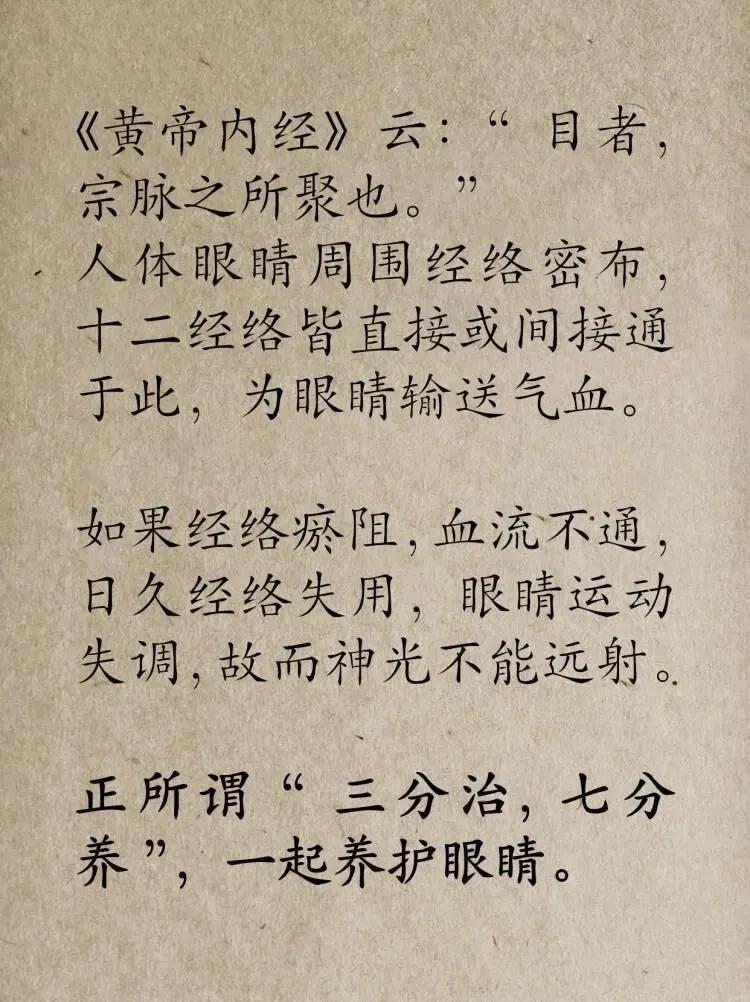 《黄帝内经》云：“目者，
宗脉之所聚也。”
人体眼睛周围经络密布，
十二经络皆直接或间接通
于此，为眼睛输送气血。
如果经络瘀阻，血流不通，
日久经络失用，眼睛运动
失调，故而神光不能远射。
正所谓“三分治，七分
养”，一起养护眼睛。